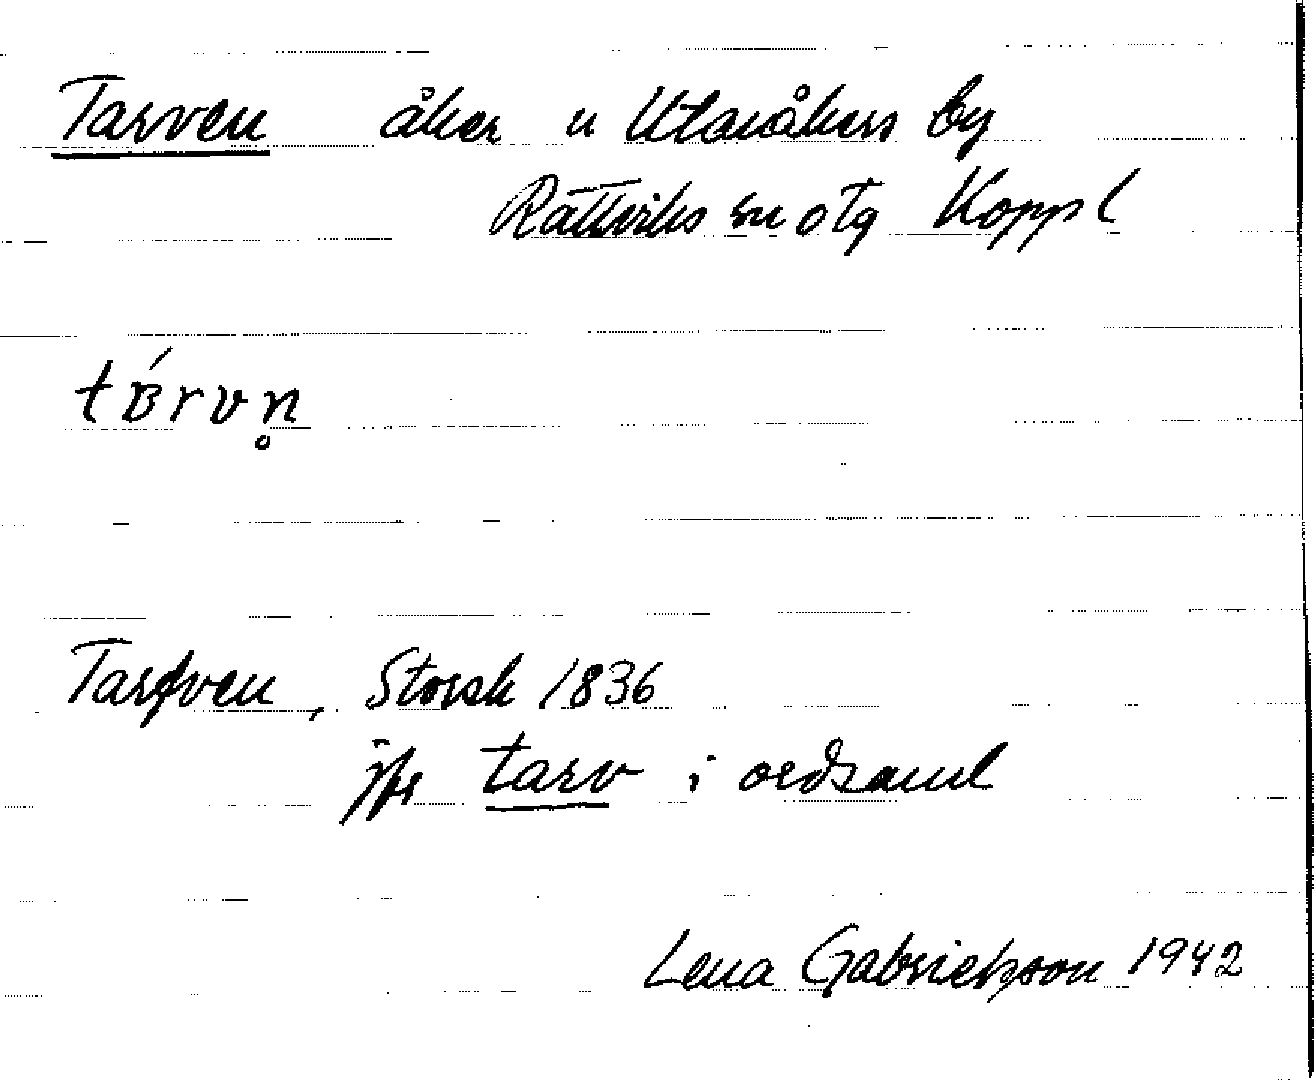 Tarven åker n Utanåkers by
Rättviks sn o tg Koppl
tʙ́rvn̥
Tarfven, Storsk 1836
jfr tarv i ordsaml
Lena Gabrielsson 1942